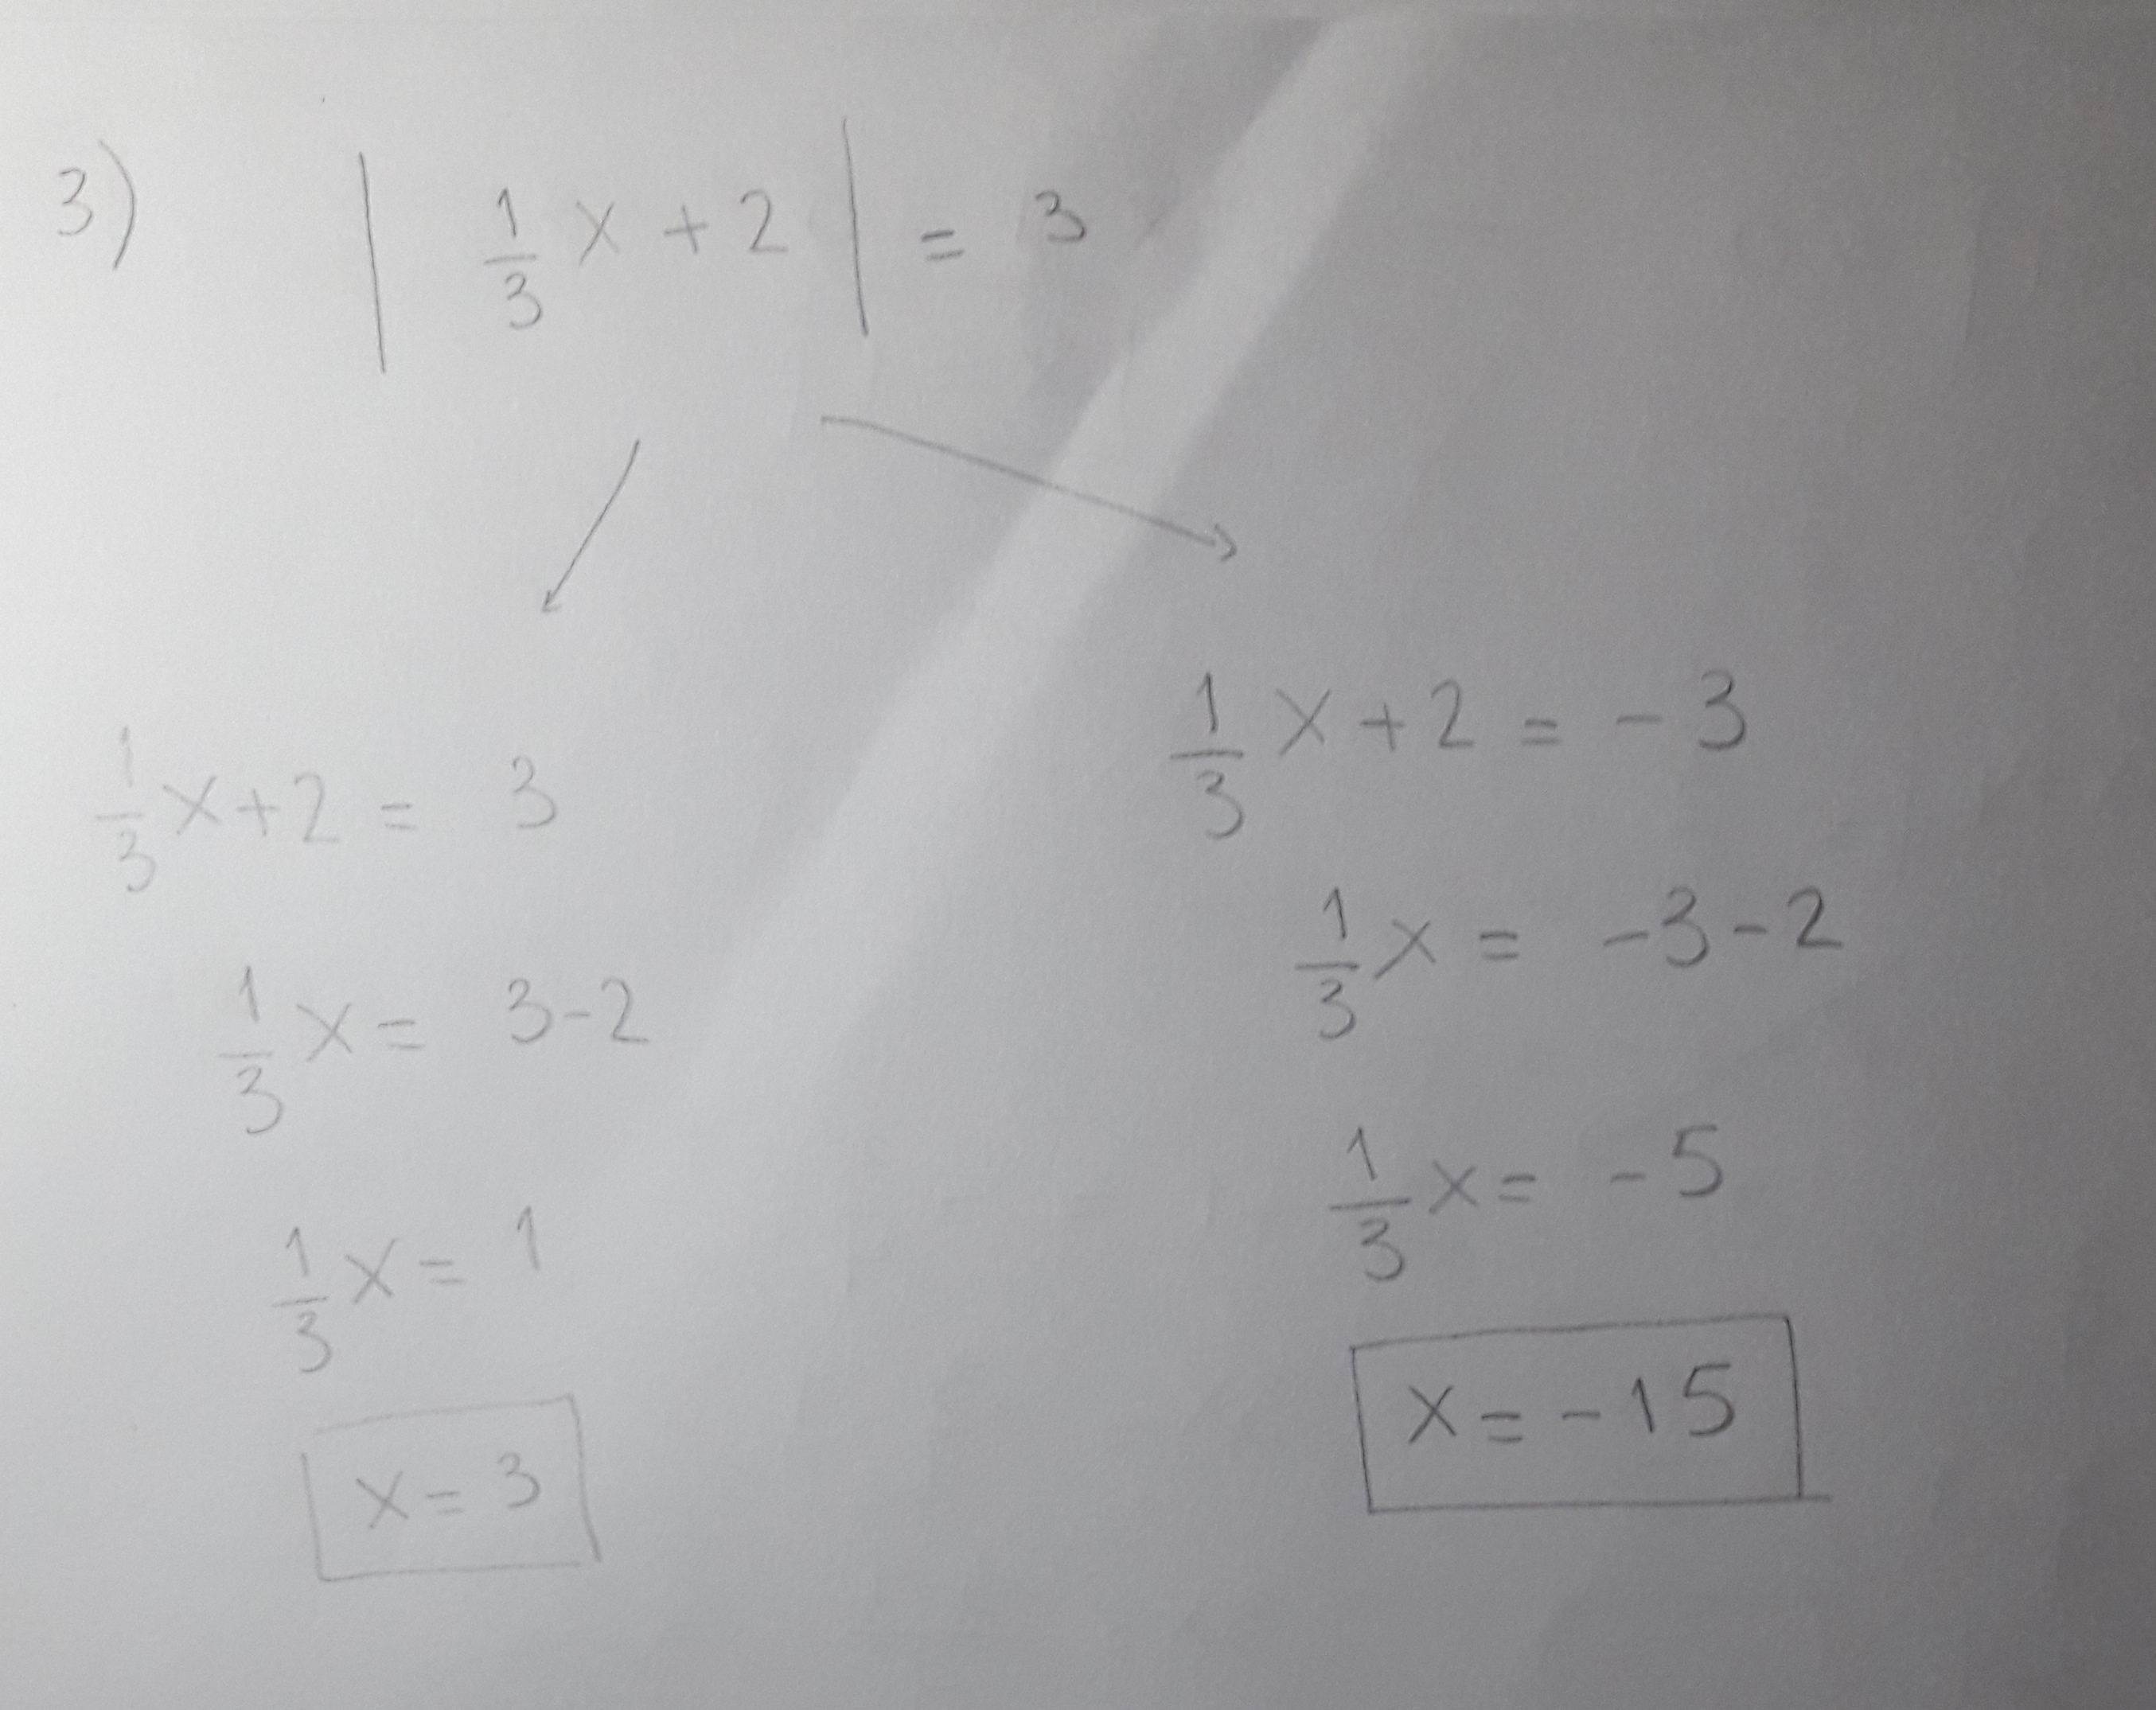 3) | 1/3 x + 2 | = 3
1/3 x + 2 = 3
1/3 x = 3 - 2
1/3 x = 1
x = 3
1/3 x + 2 = - 3
1/3 x = - 3 - 2
1/3 x = - 5
x = - 15